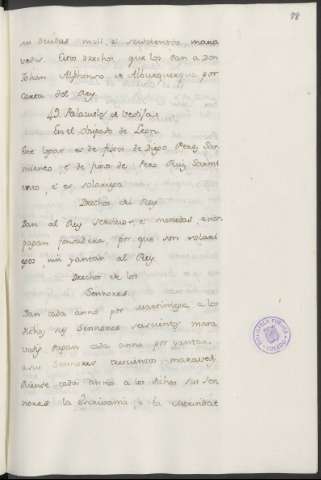 98
mil, e seiscientos, mara
vedis. Estos derechos que los dan a Don
Johan Alphonso de Alburquerque por
Carta del Rey.
49. Palaçuelos de Vedijas
En el obispado de Leon.
Este logar es de fijos de Diego Perez Sar
miento, e de fijos de Pero Ruiz Sarmi
ento, e es solariega
Derechos del Rey
Dan al Rey servicios, e monedas e non
pagan fonsadera, por que son solari
egos, nin yantar al Rey.
Derechos de los
Sennores
Dan cada anno por martiniega a los
dichos sus Sennores sesenta mara
vedis e dan cada anno por yantar
a sus Sennores trescientos maraveds,
e dende cada anno a los dichos sus Sen
nores la e la